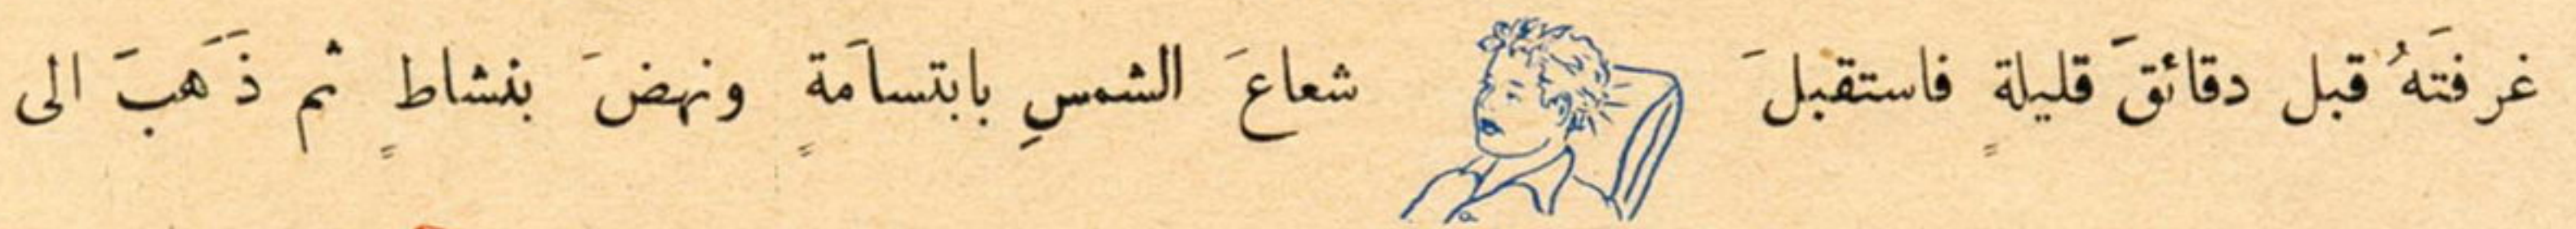 غرفتَهُ قبل دقائقَ قليلةٍ فاستقبلَ شعاعَ الشمسِ بابتسامَةٍ ونهضَ بنشاطٍ ثم ذَهَبَ الى